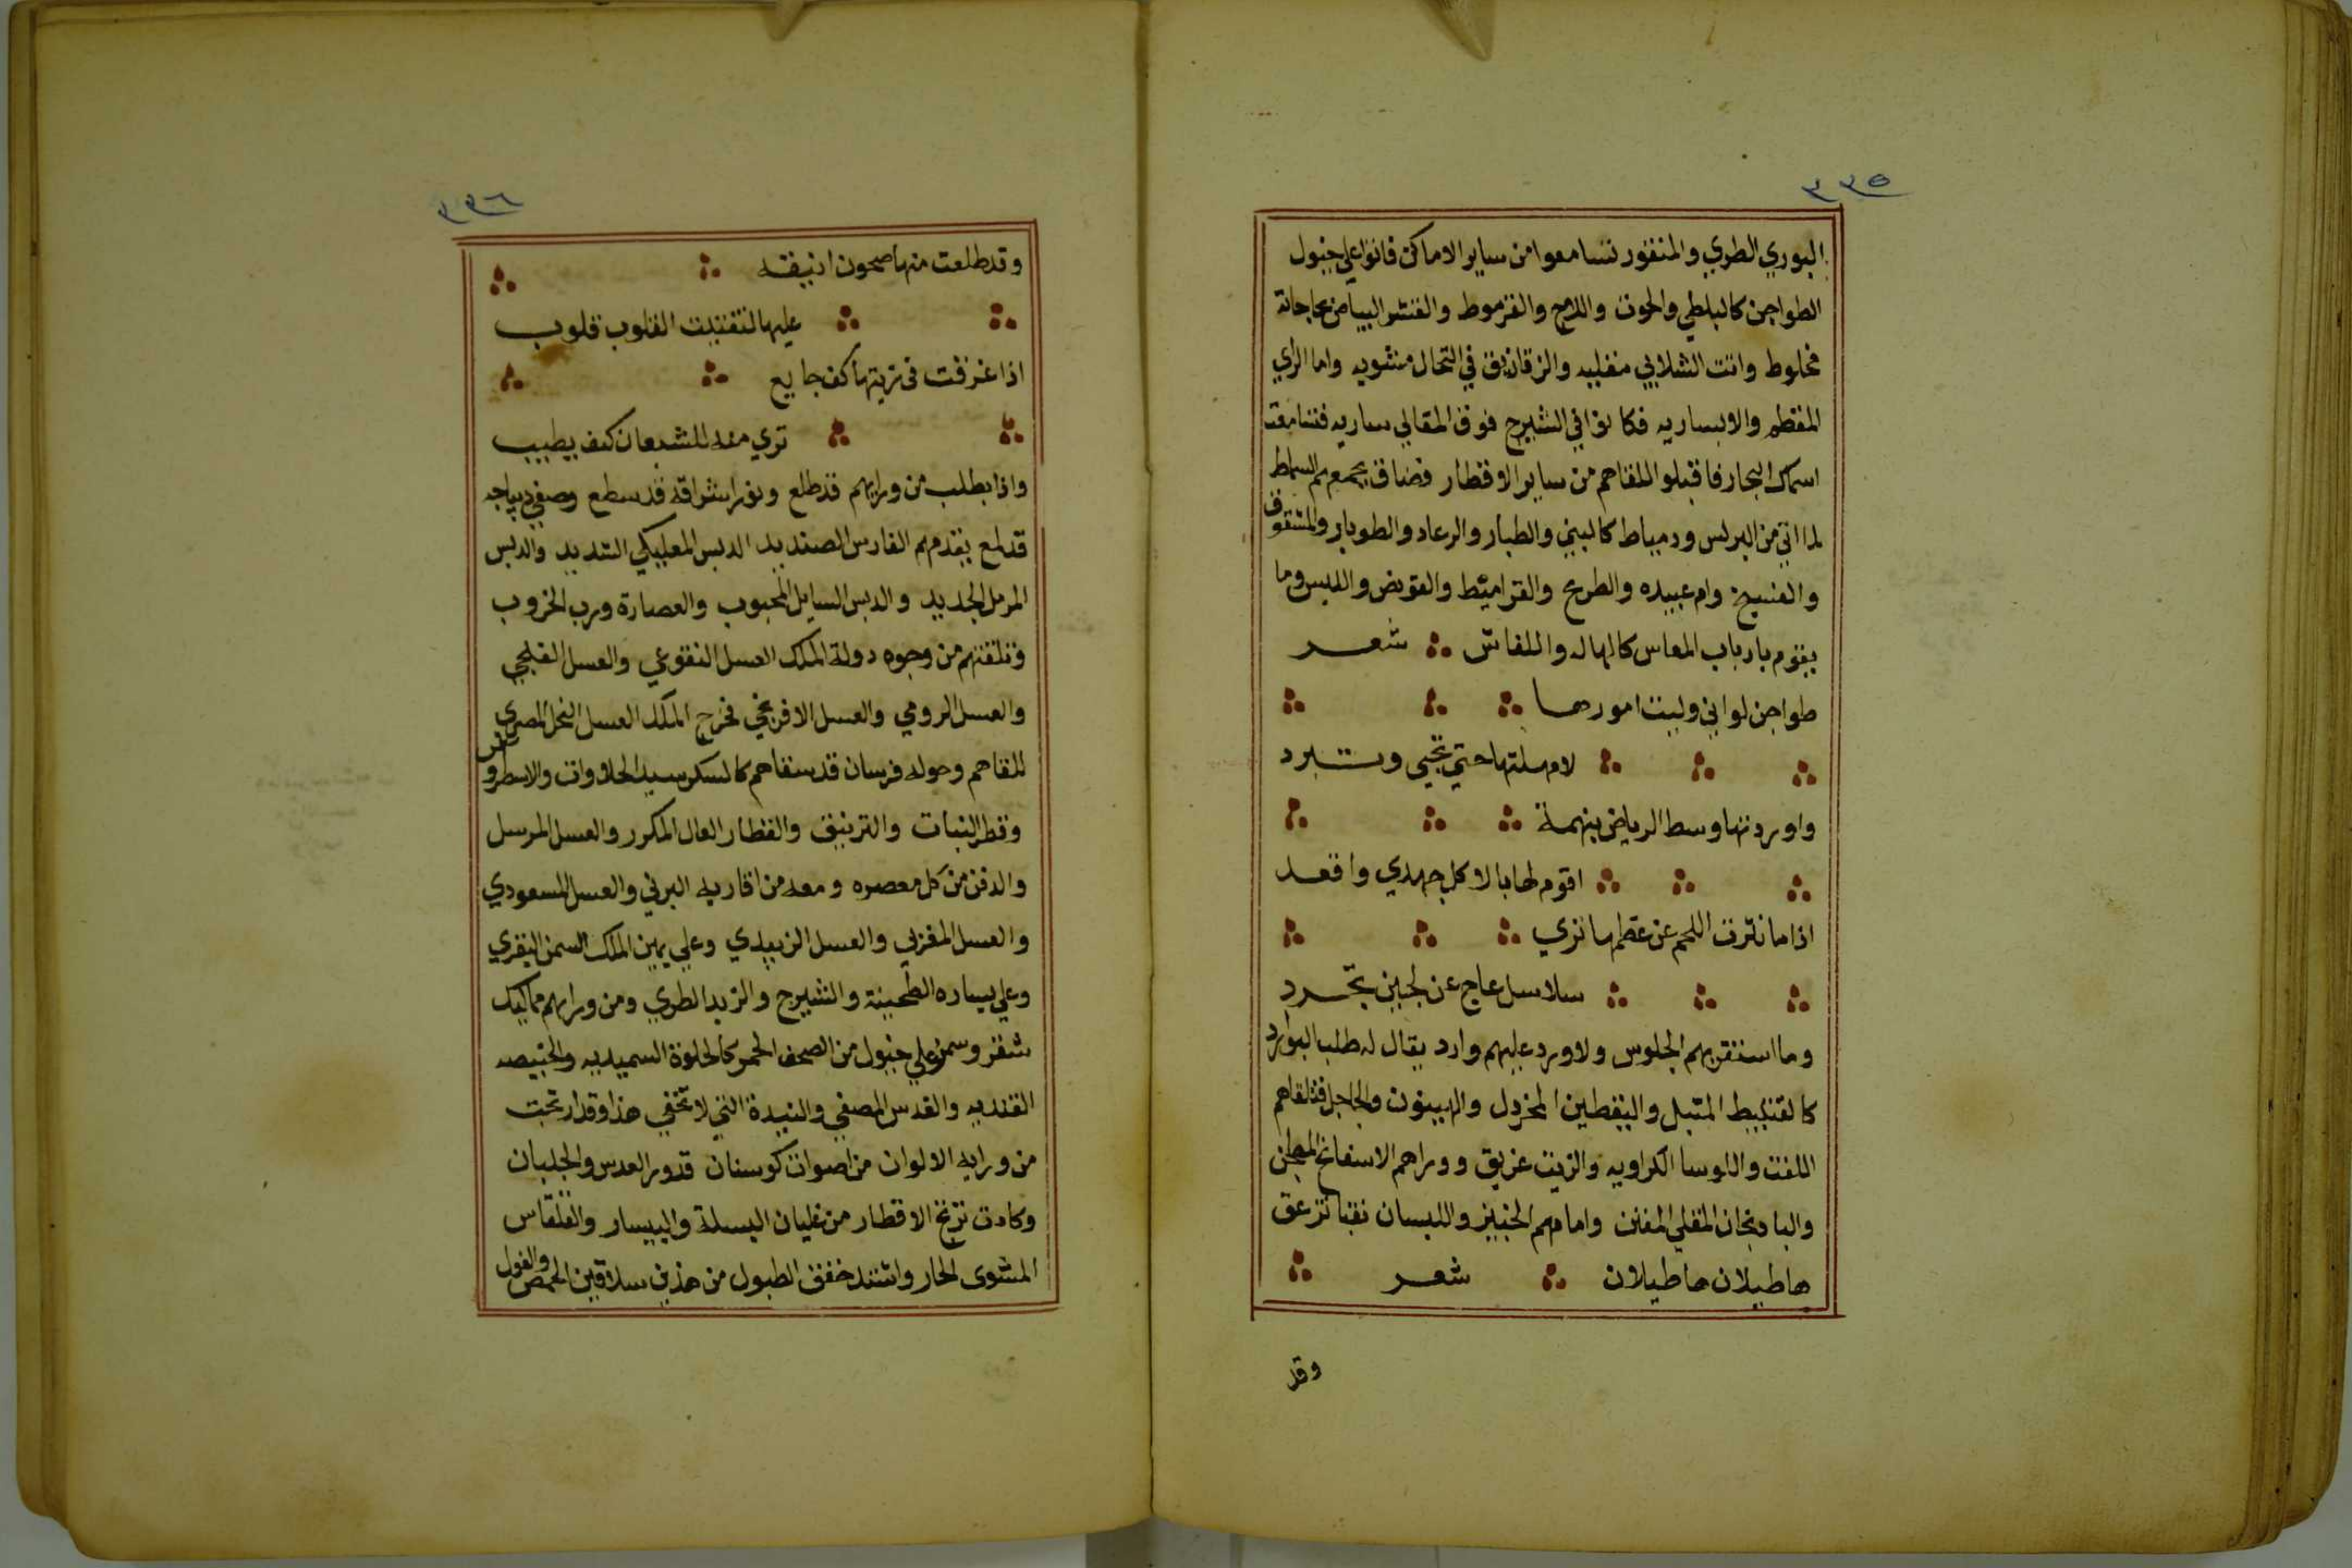 ٣٣٥
البوري الطري والمنقور تسامعوا من ساير الاماكن فاتوا علي خيول
الطواجن كالبلطي والحوت واللاج والقرموط والقشر البياض بحاجاته
مخلوط واتت الشلابي مقليه والزقازيق في التحال مشويه واما الراي
المقطم والابساريه فكانوا في الشيرج فوق المقالي ساريه فتسامعت
اسماك البحار فاقبلوا للقاهم من ساير الاقطار فضاف بجمعهم السماط
لما اتي من البرلس ودمياط كالبني والطبار والرعاد والطوبار والشقوق
والفسيخ وام عبيده والطريح والقراميط والقويض واللبيس وما
يقوم بارباب المعاس كالهاله واللفاش شعر
طواجن لو اني وليت امورها
لامهلتها حتي تجي وتبرد
واوردتها وسط الرياض بنهمة
اقوم لها بالاكل جهدي واقعد
اذا ما نثرت اللحم عن عظمها تري
سلاسل عاج عن لجين تجرد
وما استقر بهم الجلوس ولا ورد عليهم وارد يقال له طلب البوارد
كالقنبيط المتبل واليقطين المخردل والهيبون والجاجل فتلقاهم
اللفت واللوبيا الكراويه والزيت غريق ووراهم الاسفانخ المطجن
والبادنجان المقلي المفتت وامامهم الخبيز واللبسان نقبا تزعق
هاطيلان هاطيلان شعر
وقد
٣٣٦
وقد طلعت منها صحون انيقه
عليها لتفتيت القلوب قلوب
اذا غرفت في زيتها كف جايع
تري منه للشبعان كيف يطيب
واذا بطلب من ورايهم قد طلع ونور اشراقه قد سطع وصفي ديباجه
قد لمع يقدمهم الفارس الصنديد الدبس البعلبكي الشديد والدبس
المرمل الجديد والدبس السايل المحبوب والعصارة ورب الخروب
وتلقتهم من وجوه دولة الملك العسل النقوعي والعسل الفلجي
والعسل الرومي والعسل الافرنجي فخرج الملك العسل النحل المصري
للقاهم وحوله فرسان قد سقاهم كالسكر سيد الحلاوات والاسطروس
وقطر النبات والترينيق والقطار العال المكرر والعسل المرسل
والدفن من كل معصره ومعه من اقاربه البرني والعسل المسعودي
والعسل المغربي والعسل الزبيدي وعلي يمين الملك السمن البقري
وعلي يساره الطحينة والشيرج والزبد الطري ومن ورايهم مماليك
شقر وسمر علي خيول من الصحف الحمر كالحلاوة السميديه والخبيصه
القنديه والقدس المصفي والنيدة التي لا تخفي هذا وقد ارتجت
من ورايه الالوان من اصوات كوسنان قدور العدس والجلبان
وكادت ترتج الاقطار من غليان البسلة والبيسار والقلقاس
المشوي الحار واشتد خفق الطبول من هذين سلاقين الحمص والفول